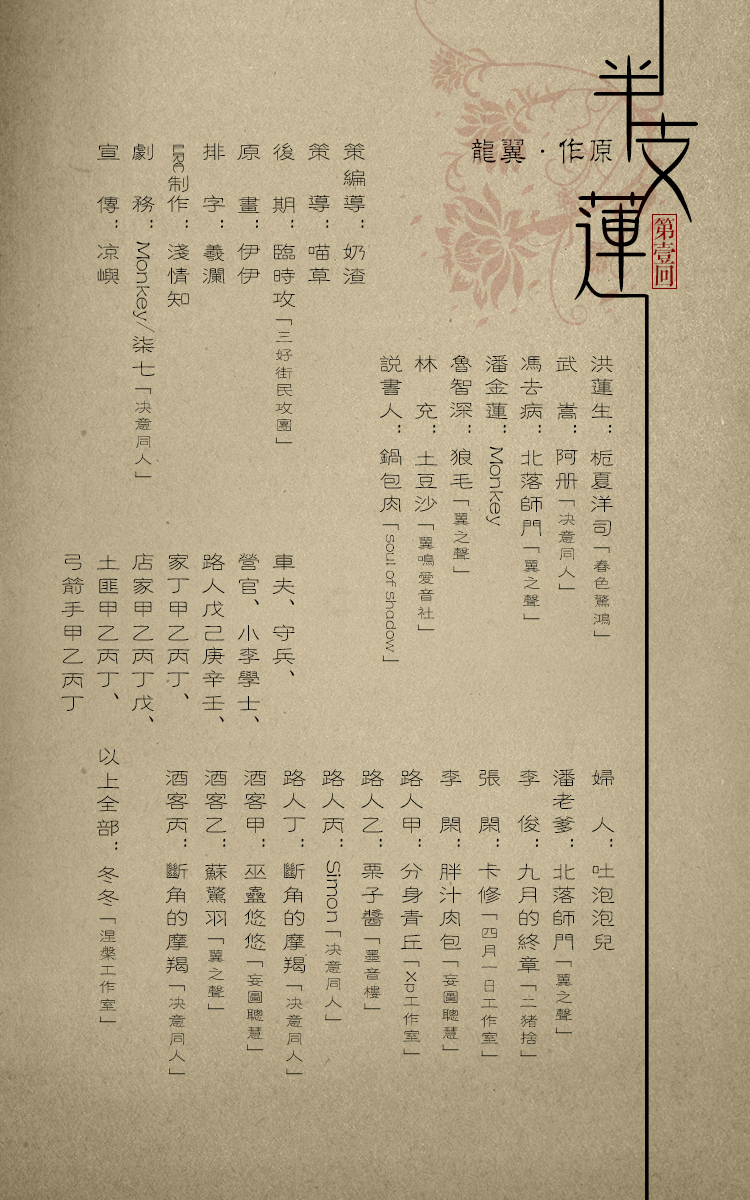 半支蓮
第壹回
龍翼·作原
策編導：奶渣
策導：喵草
後期：臨時攻「三好街民攻團」
原畫：伊伊
排字：羲瀾
LRC制作：淺情知
劇務：Monkey/柒七「决意同人」
宣傳：凉嶼
洪蓮生：栀夏洋司「春色驚鴻」
武嵩：阿册「决意同人」
馮去病：北落師門「翼之聲」
潘金蓮：Monkey
魯智深：狼毛「翼之聲」
林充：土豆沙「翼鳴愛音社」
説書人：鍋包肉「soul of shadow」
車夫、守兵、
營官、小李學士、
路人戊己庚辛壬、
家丁甲乙丙丁、
店家甲乙丙丁戊、
土匪甲乙丙丁、
弓箭手甲乙丙丁
婦人：吐泡泡兒
潘老爹：北落師門「翼之聲」
李俊：九月的終章「二豬捨」
張閑：卡修「四月一日工作室」
李閑：胖汁肉包「妄圖聰慧」
路人甲：分身青丘「Xp工作室」
路人乙：栗子醬「墨音樓」
路人丙：Simon「决意同人」
路人丁：斷角的摩羯「决意同人」
酒客甲：巫蠱悠悠「妄圖聰慧」
酒客乙：蘇驚羽「翼之聲」
酒客丙：斷角的摩羯「决意同人」
以上全部：冬冬「涅槃工作室」